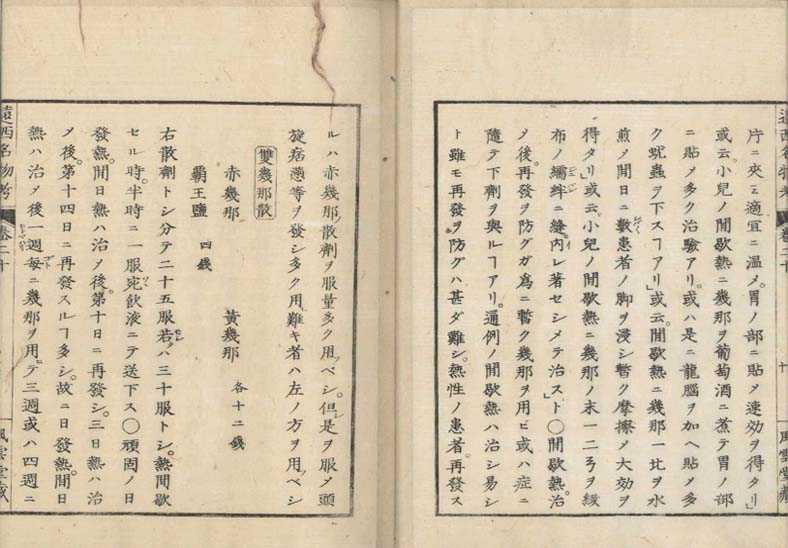 片ニ夾ミ適宜ニ温メ。胃ノ部ニ貼メ速効ヲ得タリ」
或云。小兒ノ間歇熱ニ幾那ヲ葡萄酒ニ煮テ胃ノ部
ニ貼メ多ク治驗アリ。或ハ是ニ龍腦ヲ加ヘ貼メ多
ク蚘蟲ヲ下スヿアリ」或云。間歇熱ニ幾那一比ヲ水
煎メ間日ニ數患者ノ脚ヲ浸シ暫ク摩擦メ大効ヲ
得タリ」或云。小兒ノ間歇熱ニ幾那ノ末一二ヲ緞
布ノ襦絆ニ縫内レ著セシメテ治ス」ト〇間歇熱治
メ後。再發ヲ防グガ爲ニ暫ク幾那ヲ用ヒ或ハ症ニ
隨テ下劑ヲ與ルヿアリ。通例ノ間歇熱ハ治シ易シ
ト雖モ再發ヲ防グハ甚ダ難シ。熱性ノ患者。再發ス
十
風雲堂藏
遠西名物考
卷二十
ルハ赤幾那散劑ヲ服量多ク用ベシ。但是ヲ服メ頭
旋痞懣等ヲ發シ多ク用難キ者ハ左ノ方ヲ用ベシ
雙幾那散
赤幾那 黄幾那 各十二錢
覇王鹽 四錢
右散劑トシ分テ二十五服若ハ三十服トシ。熱間歇
セル時。半時ニ一服宛飲液ニテ送下ス〇頑固ノ日
發熱。間日熱ハ治メ後。第十日ニ再發シ。三日熱ハ治
メ後。第十四日ニ再發スルヿ多シ。故ニ日發熱。間日
熱ハ治メ後一週毎ニ幾那ヲ用テ三週或ハ四週ニ
遠西名物考
卷二十
風雲堂藏